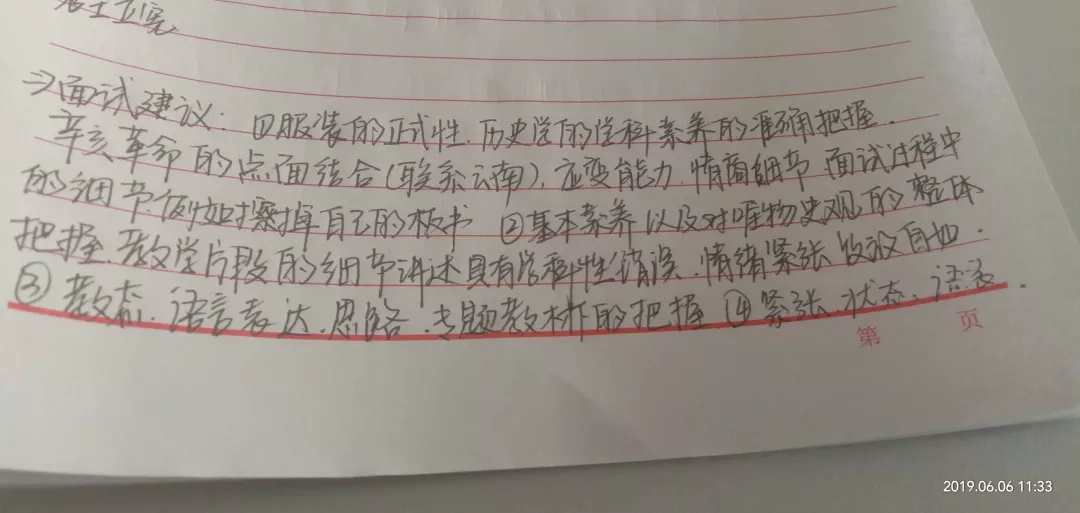 立宪
⇒面试建议: ①服装的正式性.历史学的学科素养的准确把握.
辛亥革命的点面结合(联系云南).应变能力.情商细节 面试过程中
的细节.例如擦掉自己的板书 ②基本素养以及对唯物史观的整体
把握.教学片段的细节讲述具有学科性错误.情绪紧张 收放自如.
③教态.语言表达.思路.专题教材的把握 ④紧张.状态.语速.
第 页
2019.06.06 11:33